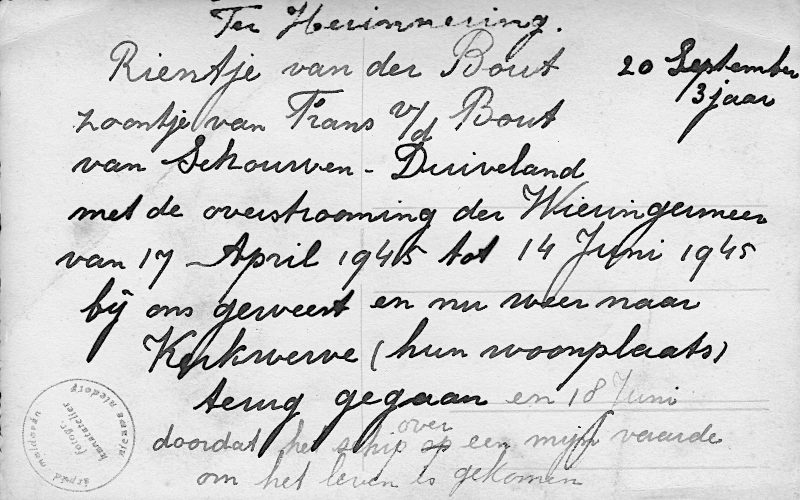 Ter Herinnering.
Rientje van der Bout
20 September
3 jaar
zoontje van Frans v/d Bout
van Schouwen-Duiveland
met de overstrooming der Wieringermeer
van 17 April 1945 tot 14 Juni 1945
bij ons geweest en nu weer naar
Kerkwerve (hun woonplaats)
terug gegaan en 18 Juni
doordat het schip op over een mijn vaarde
om het leven is gekomen
fotogr.
kunstatelier
nieuwe niedorp